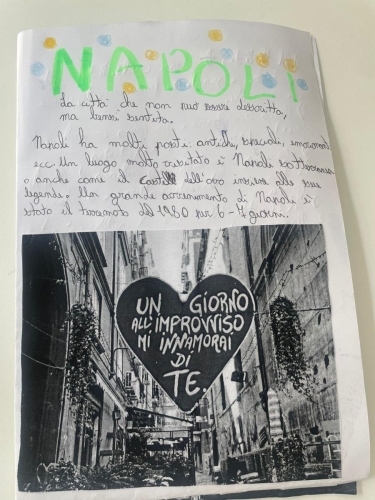 NAPOLI
La città che non può essere descritta,
ma bensì sentita.
Napoli ha molti posti: antichi, speciali, emozionali
ecc. Un luogo molto visitato è Napoli sotterranea
o anche come il Castel dell'ovo insieme alle sue
leggende. Un grande avvenimento di Napoli è
stato il terremoto del 1980 per 6-7 giorni.
UN GIORNO
ALL'IMPROVVISO
MI INNAMORAI
DI
TE.